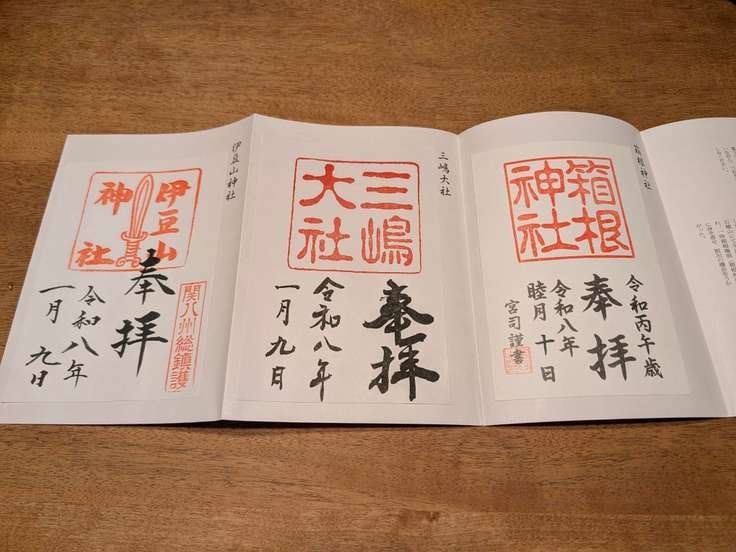 箱根神社
箱根
神社
令和丙午歳
奉拝
令和八年
睦月十日
宮司謹書
三嶋大社
三嶋
大社
奉拝
令和八年
一月九日
伊豆山神社
伊豆山
神社
関八州総鎮護
奉拝
令和八年
一月九日